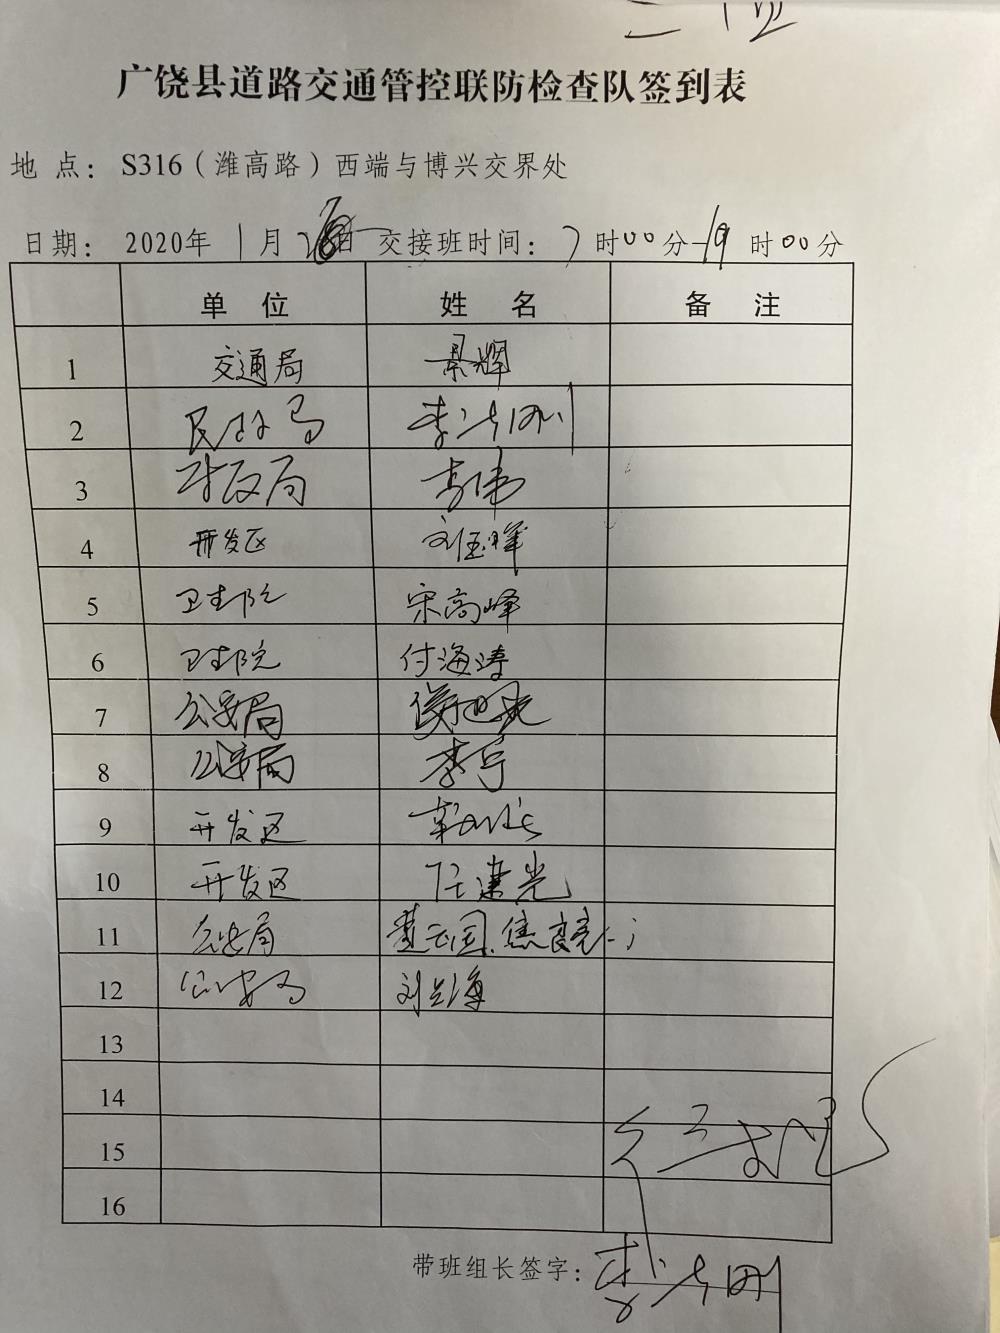 广饶县道路交通管控联防检查队签到表
地 点： S316（潍高路）西端与博兴交界处
日期： 2020年 1月 日 交接班时间： 7时00分-19时00分
单 位 姓 名 备 注
1 交通局 景辉
2 民政局 李志刚
3 财政局 李伟
4 开发区 刘玉晖
5 卫生院 宋高峰
6 卫生院 付海涛
7 公安局
8 公安局 李宁
9 开发区
10 开发区 任建光
11 公安局 焦良亮
12 公安局 刘兰海
13
14
15
16
带班组长签字： 李志刚